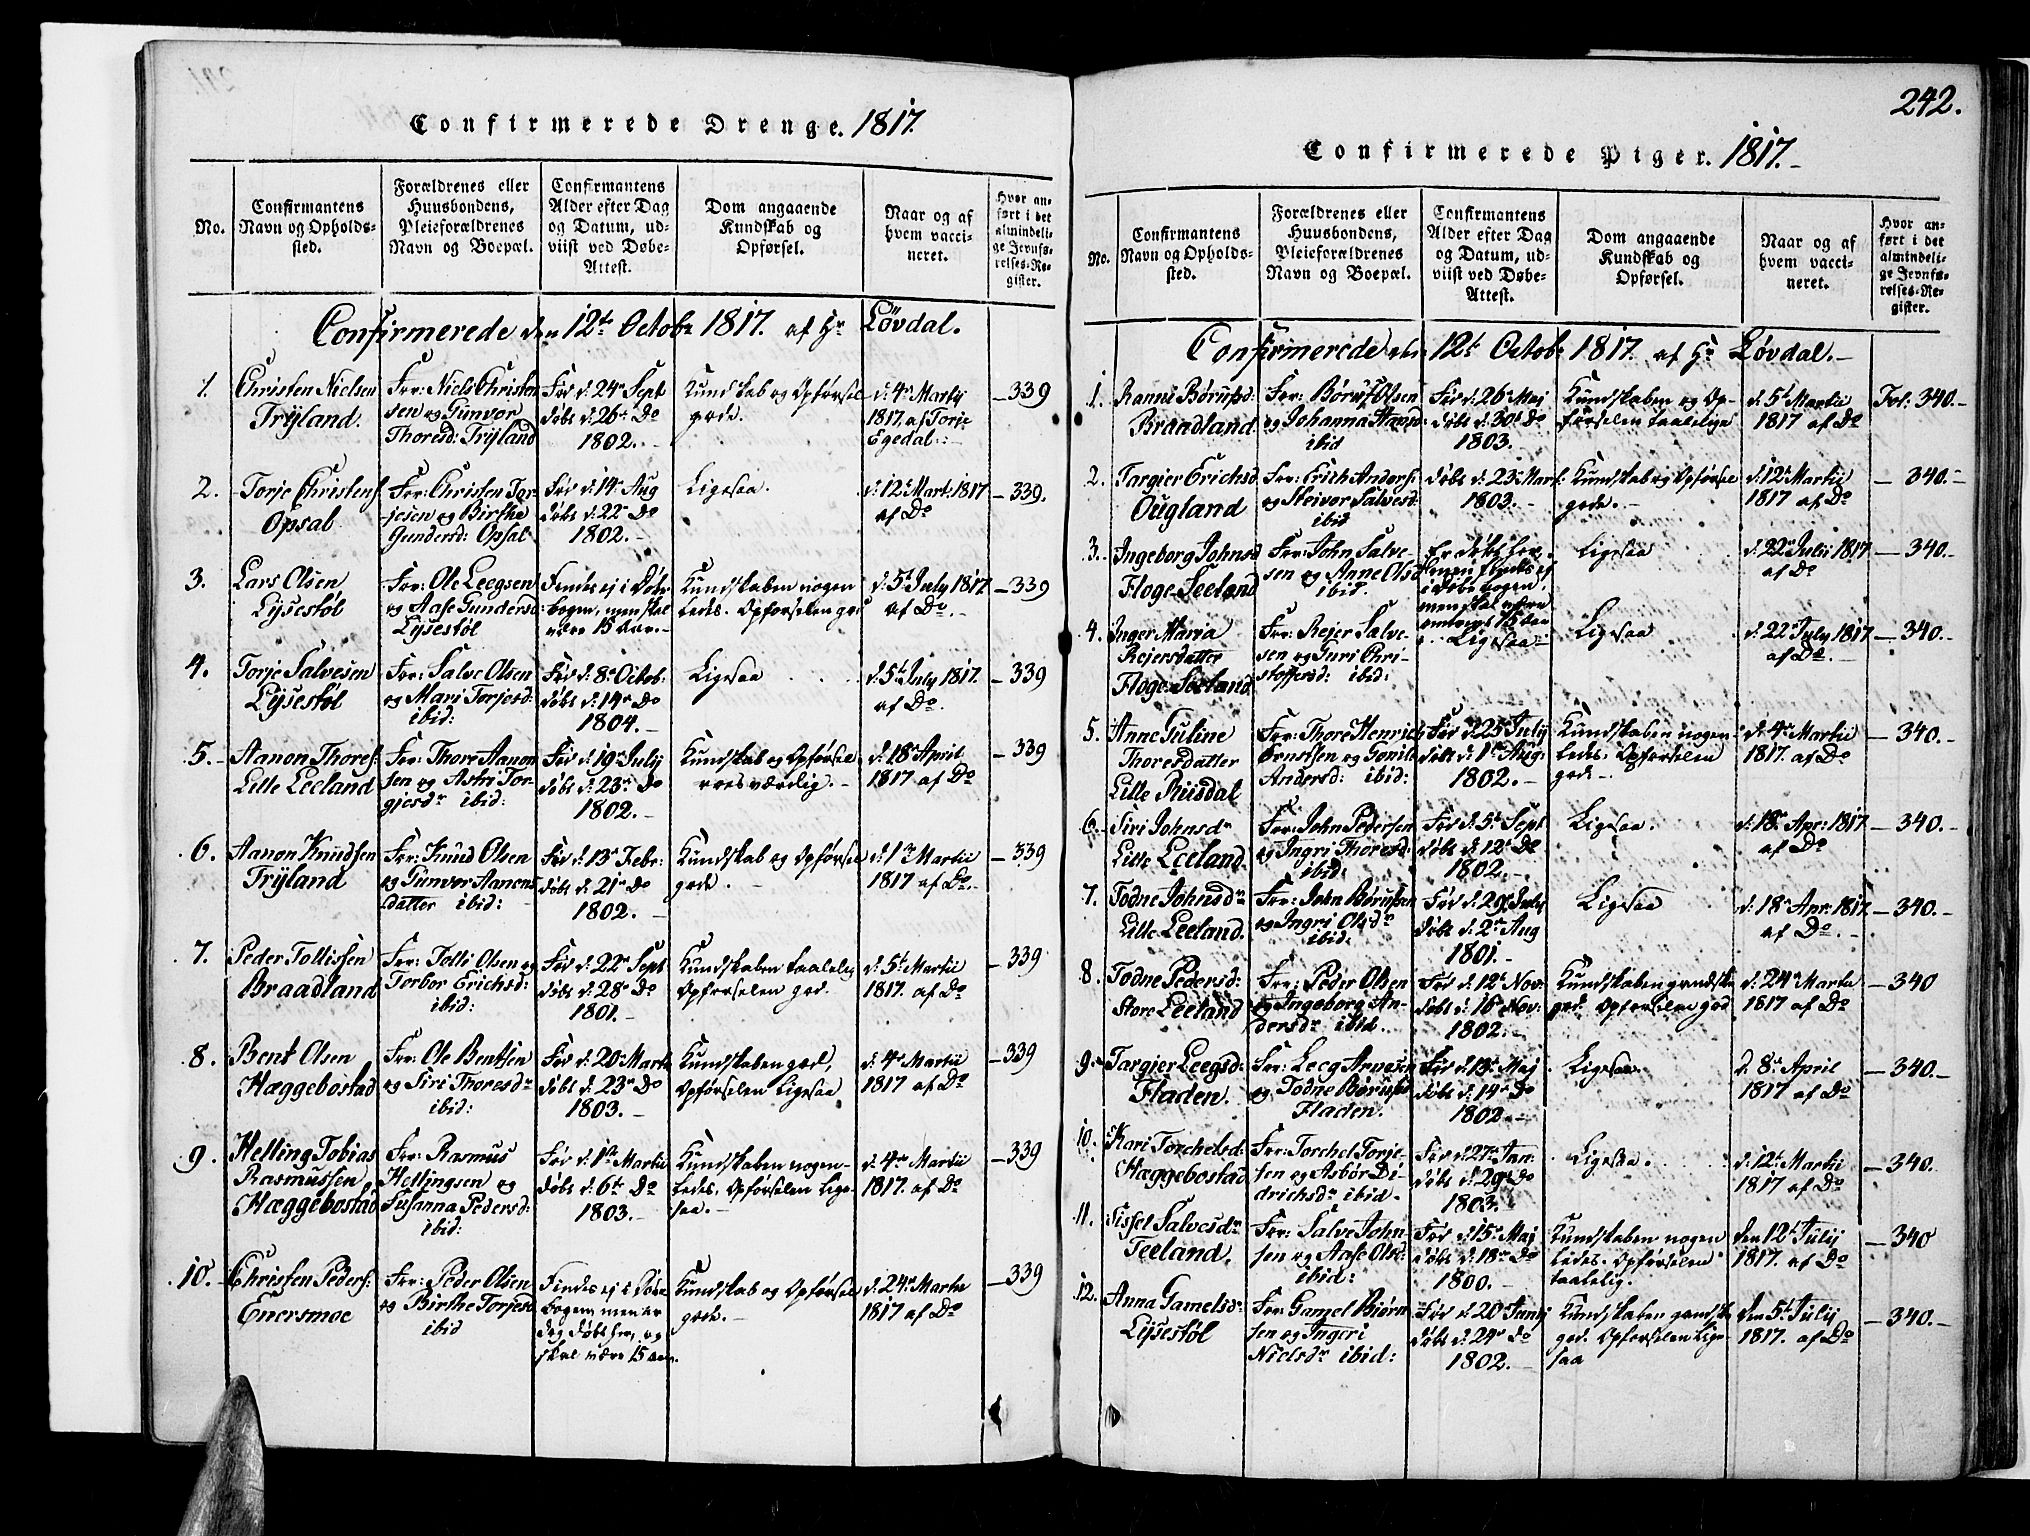 Confirmerede Drenge. 1817.
No.
Confirmantens
Navn og Opholds-
sted.
Forældrenes eller
Huusbondens,
Pleieforældrenes
Navn og Boepæl.
Confirmantens
Alder efter Dag
og Datum, ud-
viist ved Døbe-
Attest.
Dom angaaende
Kundskab og
Opførsel.
Naar og af
hvem vacci-
neret.
Hvor an-
ført i det
almindeli-
ge Jevnfø-
relses-Re-
gister.
Confirmerede den 12te Octobr 1817. af Hr Løvdal.
1.
Christen Nielsen
Tryland.
For: Niels Christen
sen og Gunvor
Thoresd: Tryland
Fød d: 24de Sept
døbt d: 26de Do
1802.
Kundskab og Opførsel
gode.
d: 4de Martii
1817. af Torje
Egedal.
339
2.
Torje Christens:
Opsal
For: Christen Tor-
jesen og Birthe
Gundersd: Opsal
Fød d: 14de Aug
døbt d: 22de Do
1802.
Ligesaa.
d: 12te Mart: 1817
af Do
339.
3.
Lars Olsen
Lysestøl
For: Ole Leegsen
og Aase Gundersd:
Lysestøl
Findes ej i Døbe
bogen, men skal
være 15 Aar.
Kundskaben nogen
ledes. Opførselen god
d: 5te July 1817
af Do.
339
4.
Torje Salvesen
Lysestøl
For: Salve Olsen
og Mari Torjesd:
ibid:
Fød d: 8de Octob:
døbt d: 14de Do
1804.
Ligesaa
d: 5te July 1817.
af Do.
339
5.
Aanon Thores:
Lille Leeland
For: Thore Aanon
sen og Astri Tor-
gjesdr ibid:
Fød d: 19de July
døbt d: 23de Do
1802.
Kundskab og Opførsel
roesværdig.
d: 18de April
1817. af Do
339
6.
Aanon Knudsen
Tryland
For: Knud Olsen
og Gunvor Aanons
datter ibid:
Fød d: 13de Febr:
døbt d: 21de Do
1802.
Kundskab og Opførsel
gode.
d: 1ste Martii
1817 af Do.
339
7.
Peder Tollissen
Braadland
For: Tolli Olsen og
Torbor Erichsd:
ibid:
Fød d: 22de Sept
døbt d: 28de Do
1801.
Kundskaben taalelig
Opførselen god.
d: 5te Martii
1817. af Do
339
8.
Bent Olsen
Hæggebostad
For: Ole Bentsen
og Siri Thoresdr
ibid:
Fød d: 20de Martii
døbt d: 23de Do
1803.
Kundskaben god,
Opførselen Ligesaa
d: 4de Martii
1817 af Do
339
9.
Helling Tobias
Rasmussen
Hæggebostad
For: Rasmus
Hellingsen og
Susanna Pedersd:
ibid:
Fød d: 1ste Martii
døbt d: 6te Do
1803.
Kundskaben nogen-
ledes, Opførselen Lige-
saa.
d: 4de Martii
1817. af Do
339
10.
Christen Peders:
Enersmoe
For: Peder Olsen
og Birthe Torjesd:
ibid
Findes ej i Døbe
bogen men er
dog døbt her, og
skal være 15 Aar.
Kundskab og Opførsel
gode.
d: 24de Martii
1817 af Do
339
242.
Confirmerede Piger. 1817.
No.
Confirmantens
Navn og Opholds-
sted.
Forældrenes eller
Huusbondens,
Pleieforældrenes
Navn og Boepæl.
Confirmantens
Alder efter Dag
og Datum, ud-
viist ved Døbe-
Attest.
Dom angaaende
Kundskab og
Opførsel.
Naar og af
hvem vacci-
neret.
Hvor an-
ført i det
almindeli-
ge Jevnfø-
relses-Re-
gister.
Confirmerede den 12te Octob: 1817. af Hr Løvdal.
1.
Ranni Børufsd:
Braadland.
For: Børuf Olsen
og Johanna
ibid
Fød d: 26de Maj
døbt d: 30te Do
1803.
Kundskaben og Op-
førselen taalelige
d: 5te Martii
1817 af Do
Fol: 340.
2.
Targier Erichsd:
Ougland
For: Erich Anders:
og Steivor Salvesd:
ibid
døbt d: 23de Mart:
1803.
Kundskab og Opførsel
gode.
d: 12te Martii
1817 af Do
340.
3.
Ingeborg Johnsd
Floge-Seeland
For: John Salve-
sen og Anne Olsd
ibid.
Er døbt her,
men findes ej
i Døbebogen,
men skal være
omtrent 15 Aar
Ligesaa
d: 22de July 1817
af Do
340.
4.
Inger Maria
Rejersdatter
Floge-Seeland
For: Rejer Salve-
sen og Guri Chri-
stoffersd: ibid:
Ligesaa
Ligesaa
d: 22de July 1817
af Do.
340.
5.
Anne Guline
Thoresdatter
Lille Risdal
For: Thore Henrich
Ørnessen og Gunild
Andersd: ibid:
Fød d: 22de July
døbt d: 1ste Aug:
1802.
Kundskaben nogen-
ledes. Opførselen
gode.
d: 4de Martii
1817. af Do
340.
6.
Siri Johnsdr
Lille Leeland
For: John Pedersen
og Ingri Thoresd:
ibid:
Fød d: 5te Sept
døbt d: 12te Do
1802.
Ligesaa.
d: 18de Apr: 1817
af Do
340.
7.
Todne Johnsdr
Lille Leeland.
For: John Børufsen
og Ingri Olsdr
ibid:
Fød d: 29de July
døbt d: 2den Aug
1801.
Ligesaa
d: 18de Apr: 1817.
af Do.
340.
8.
Todne Pedersd:
Store Leeland
For: Peder Olsen
og Ingeborg An-
dersdr ibid.
Fød d: 12te Nov:
døbt d: 16de Nov:
1802.
Kundskaben gandske
god. Opførselen god
d: 24de Martii
1817 af Do
340
9.
Targier Leegsd:
Fladen.
For: Leeg Arnesen
og Todne Børufsd
Fladen.
Fød d: 13de Maj
døbt d: 14de Do
1802.
Ligesaa.
d. 8de April
1817 af Do
340.
10.
Kari Torchelsd:
Hæggebostad
For: Torchel Torje-
sen og Asbor Di-
drichsdr ibid.
Fød d: 27de Jan:
døbt d: 29de Do
1803.
Ligesaa.
d: 12te Martii
1817 af Do
340.
11.
Sissel Salvesdr
Teeland.
For: Salve John-
sen og Aase Olsd:
ibid:
Fød d: 15de Maj
døbt d: 18de Do
1800.
Kundskaben nogen
ledes. Opførselen
taalelig.
den 12te July
1817. af Do
340
12.
Anna Gamelsd:
Lysestøl
For: Gamel Bjørn
sen og Ingeri
Nielsdr ibid:
Fød d: 20de Janij
døbt d: 24de Do
1802.
Kundskaben gandske
god. Opførselen Lige-
saa
den 5te July
1817. af Do
340.